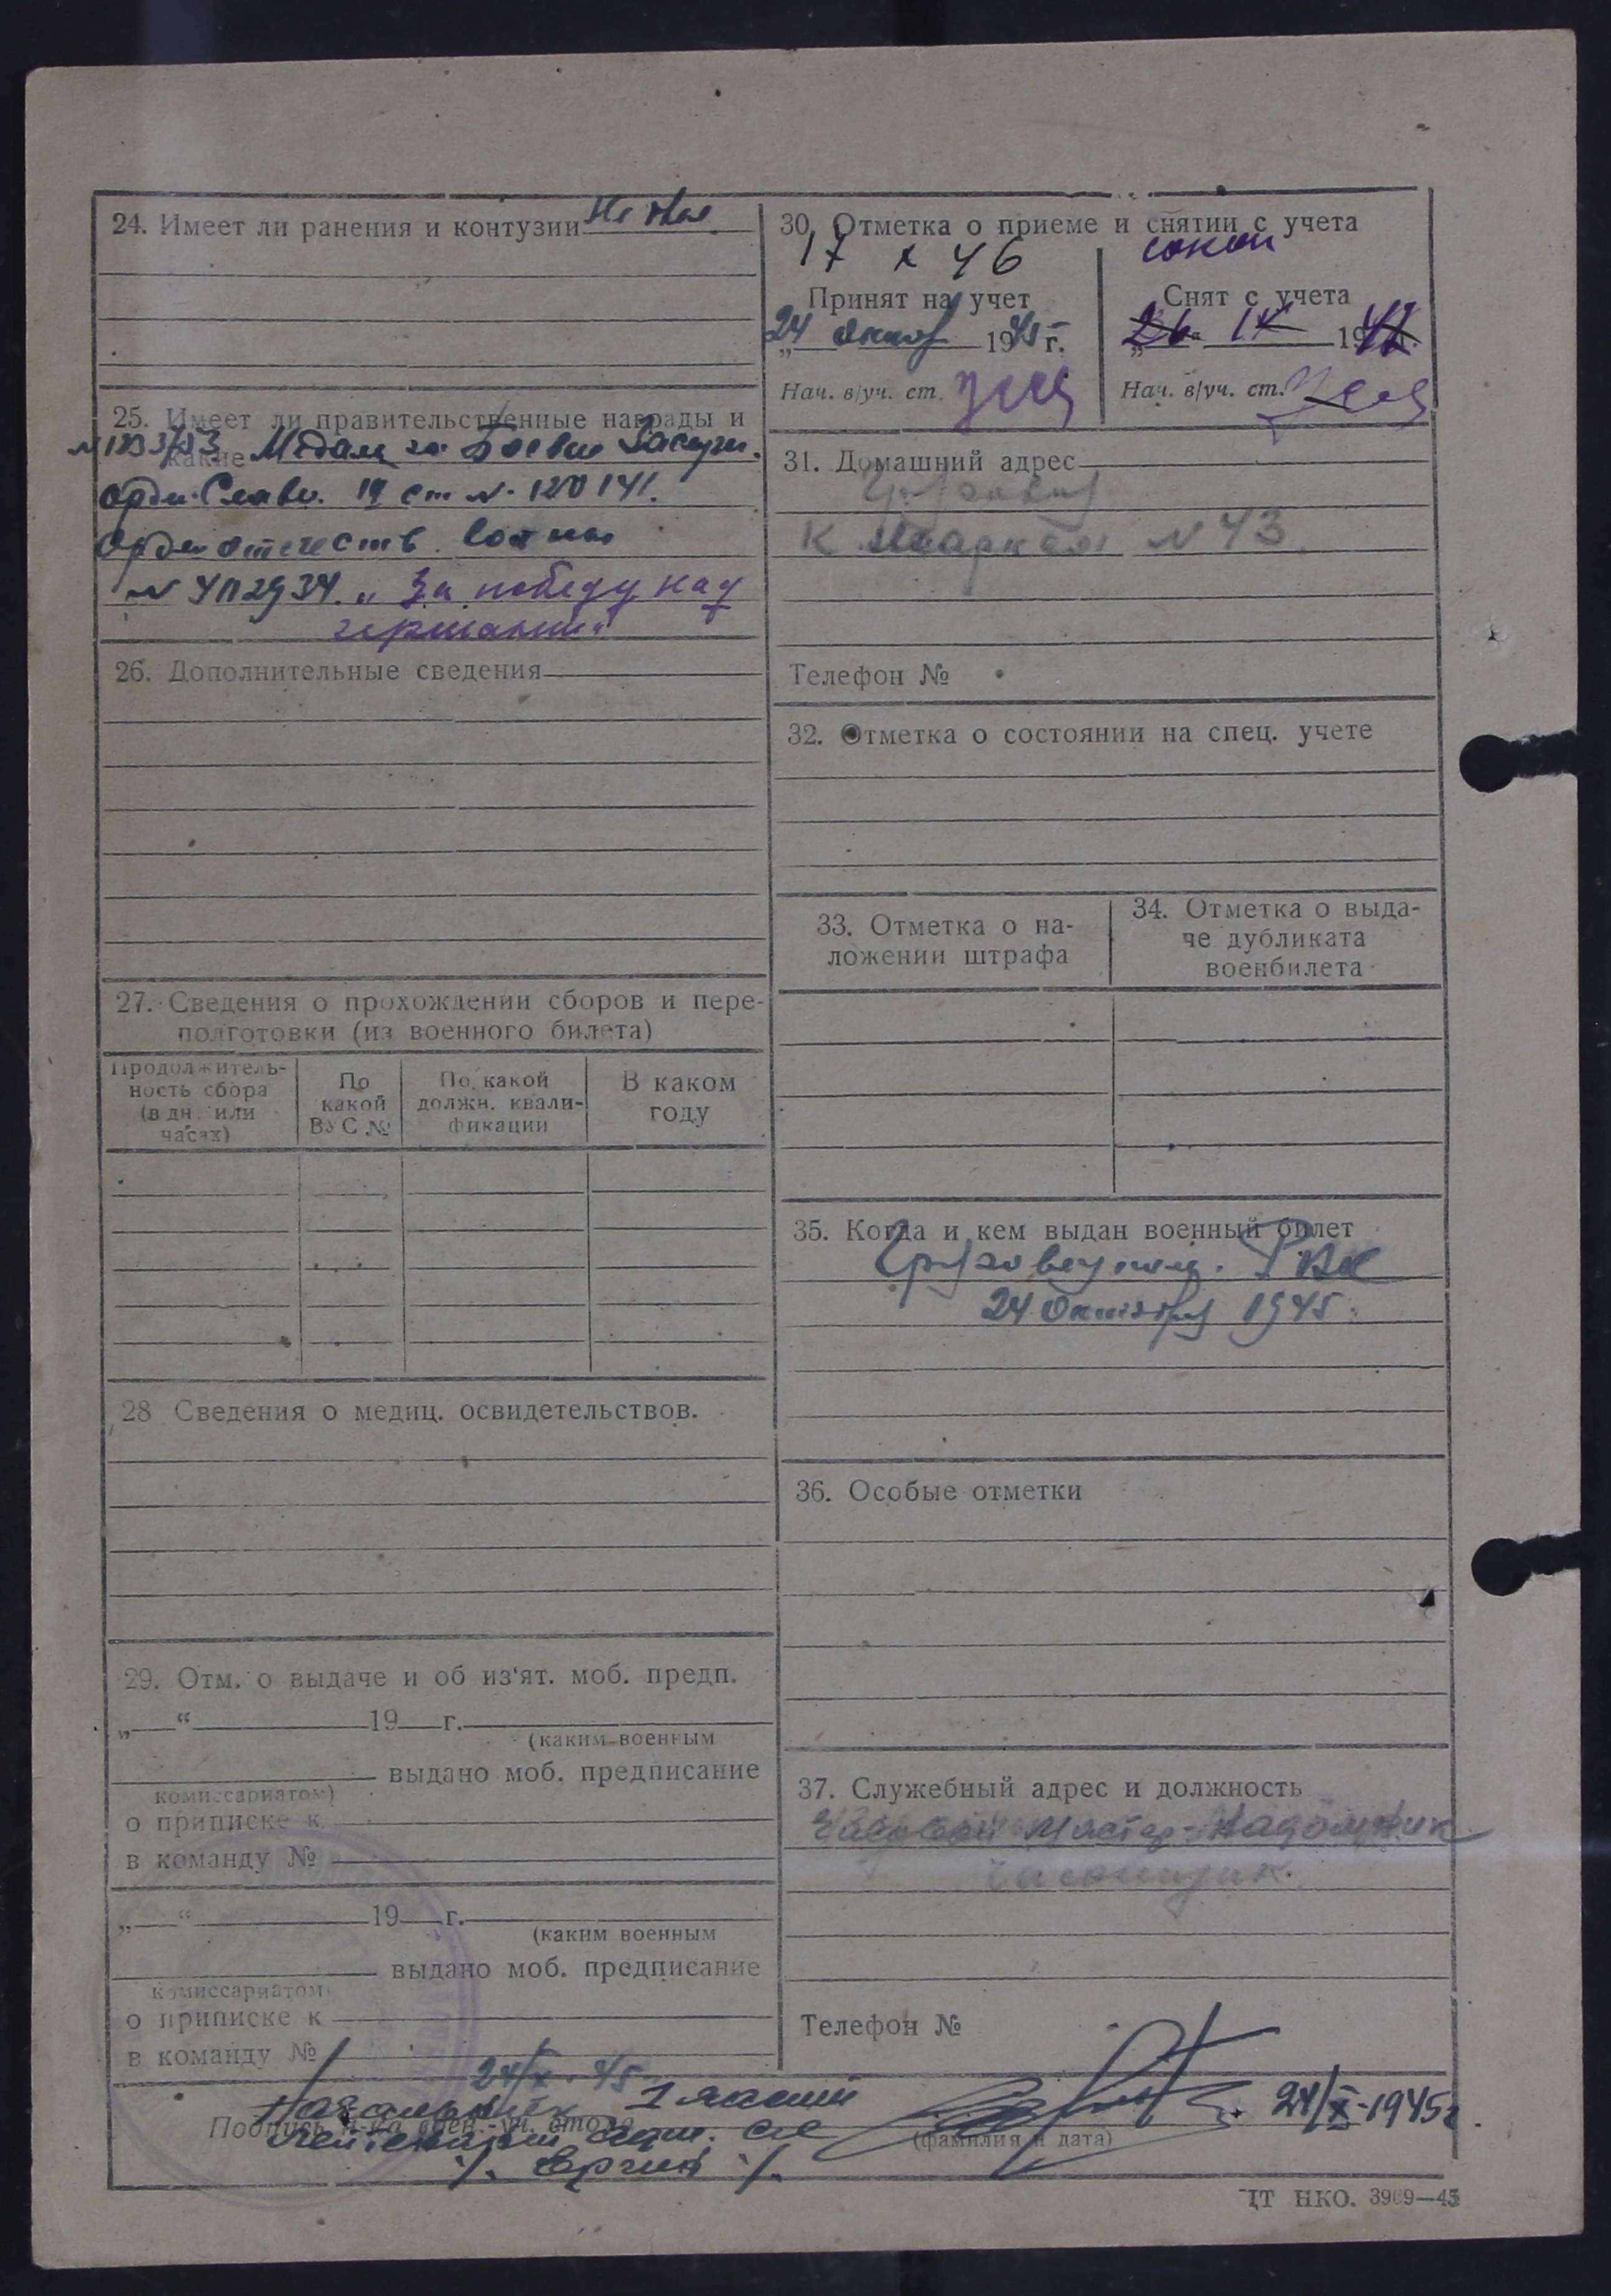 24. Имеет ли ранения и контузии
25. Имеет ли правительственные награды и
какие Медаль за Боевые Заслуги.
Орден Славы. 19 ст № 120141.
Орден отечеств. войны
"За победу над
германией"
26. Дополнительные сведения
27. Сведения о прохождении сборов и пере-
подготовки (из военного билета)
Продолжитель-
ность сбора
(в дн. или
часах)
По
какой
ВУС №
По какой
должн. квали-
фикации
В каком
году
28 Сведения о медиц. освидетельствов.
29. Отм. о выдаче и об из'ят. моб. предп.
„ “ 19 г.
(каким военным
выдано моб. предписание
комиссариатом)
о приписке к
в команду №
„ “ 19 г.
(каким военным
выдано моб. предписание
комиссариатом)
о приписке к
в команду №
30. Отметка о приеме и снятии с учета
17 X 46
Принят на учет
24 1945 г.
Нач. в/уч. ст.
Снят с учета
26 IX 19
Нач. в/уч. ст.
31. Домашний адрес
К. Маркса № 43
Телефон №
32. Отметка о состоянии на спец. учете
33. Отметка о на-
ложении штрафа
34. Отметка о выда-
че дубликата
военбилета
35. Когда и кем выдан военный билет
РВК
24 Октября 1945
36. Особые отметки
37. Служебный адрес и должность
Мастер-Надомник
часовщик.
Телефон №
24/X 45
Начальник 1 части
Подпись н-ка воен.-уч. стола
лейтенант адм. сл
24/X-1945г.
(фамилия и дата)
ЦТ НКО. 3969—45